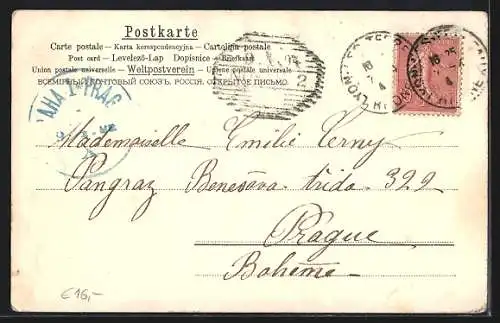 Postkarte
Carte postale – Karta korespondencyjna – Cartolina postale
Post card – Levelező-Lap Dopisnice – Briefkaart
Union postale universelle – Weltpostverein – Unione postale universale
ВСЕМІРНЫЙ ПОЧТОВЫЙ СОЮЗЪ, РОССІЯ. ОТКРЫТОЕ ПИСЬМО.
PRAG
LYON
RHONE
Mademoiselle Emilie Cerny
Pangraz Benešova třída 322
Prague
Bohême
€16,-